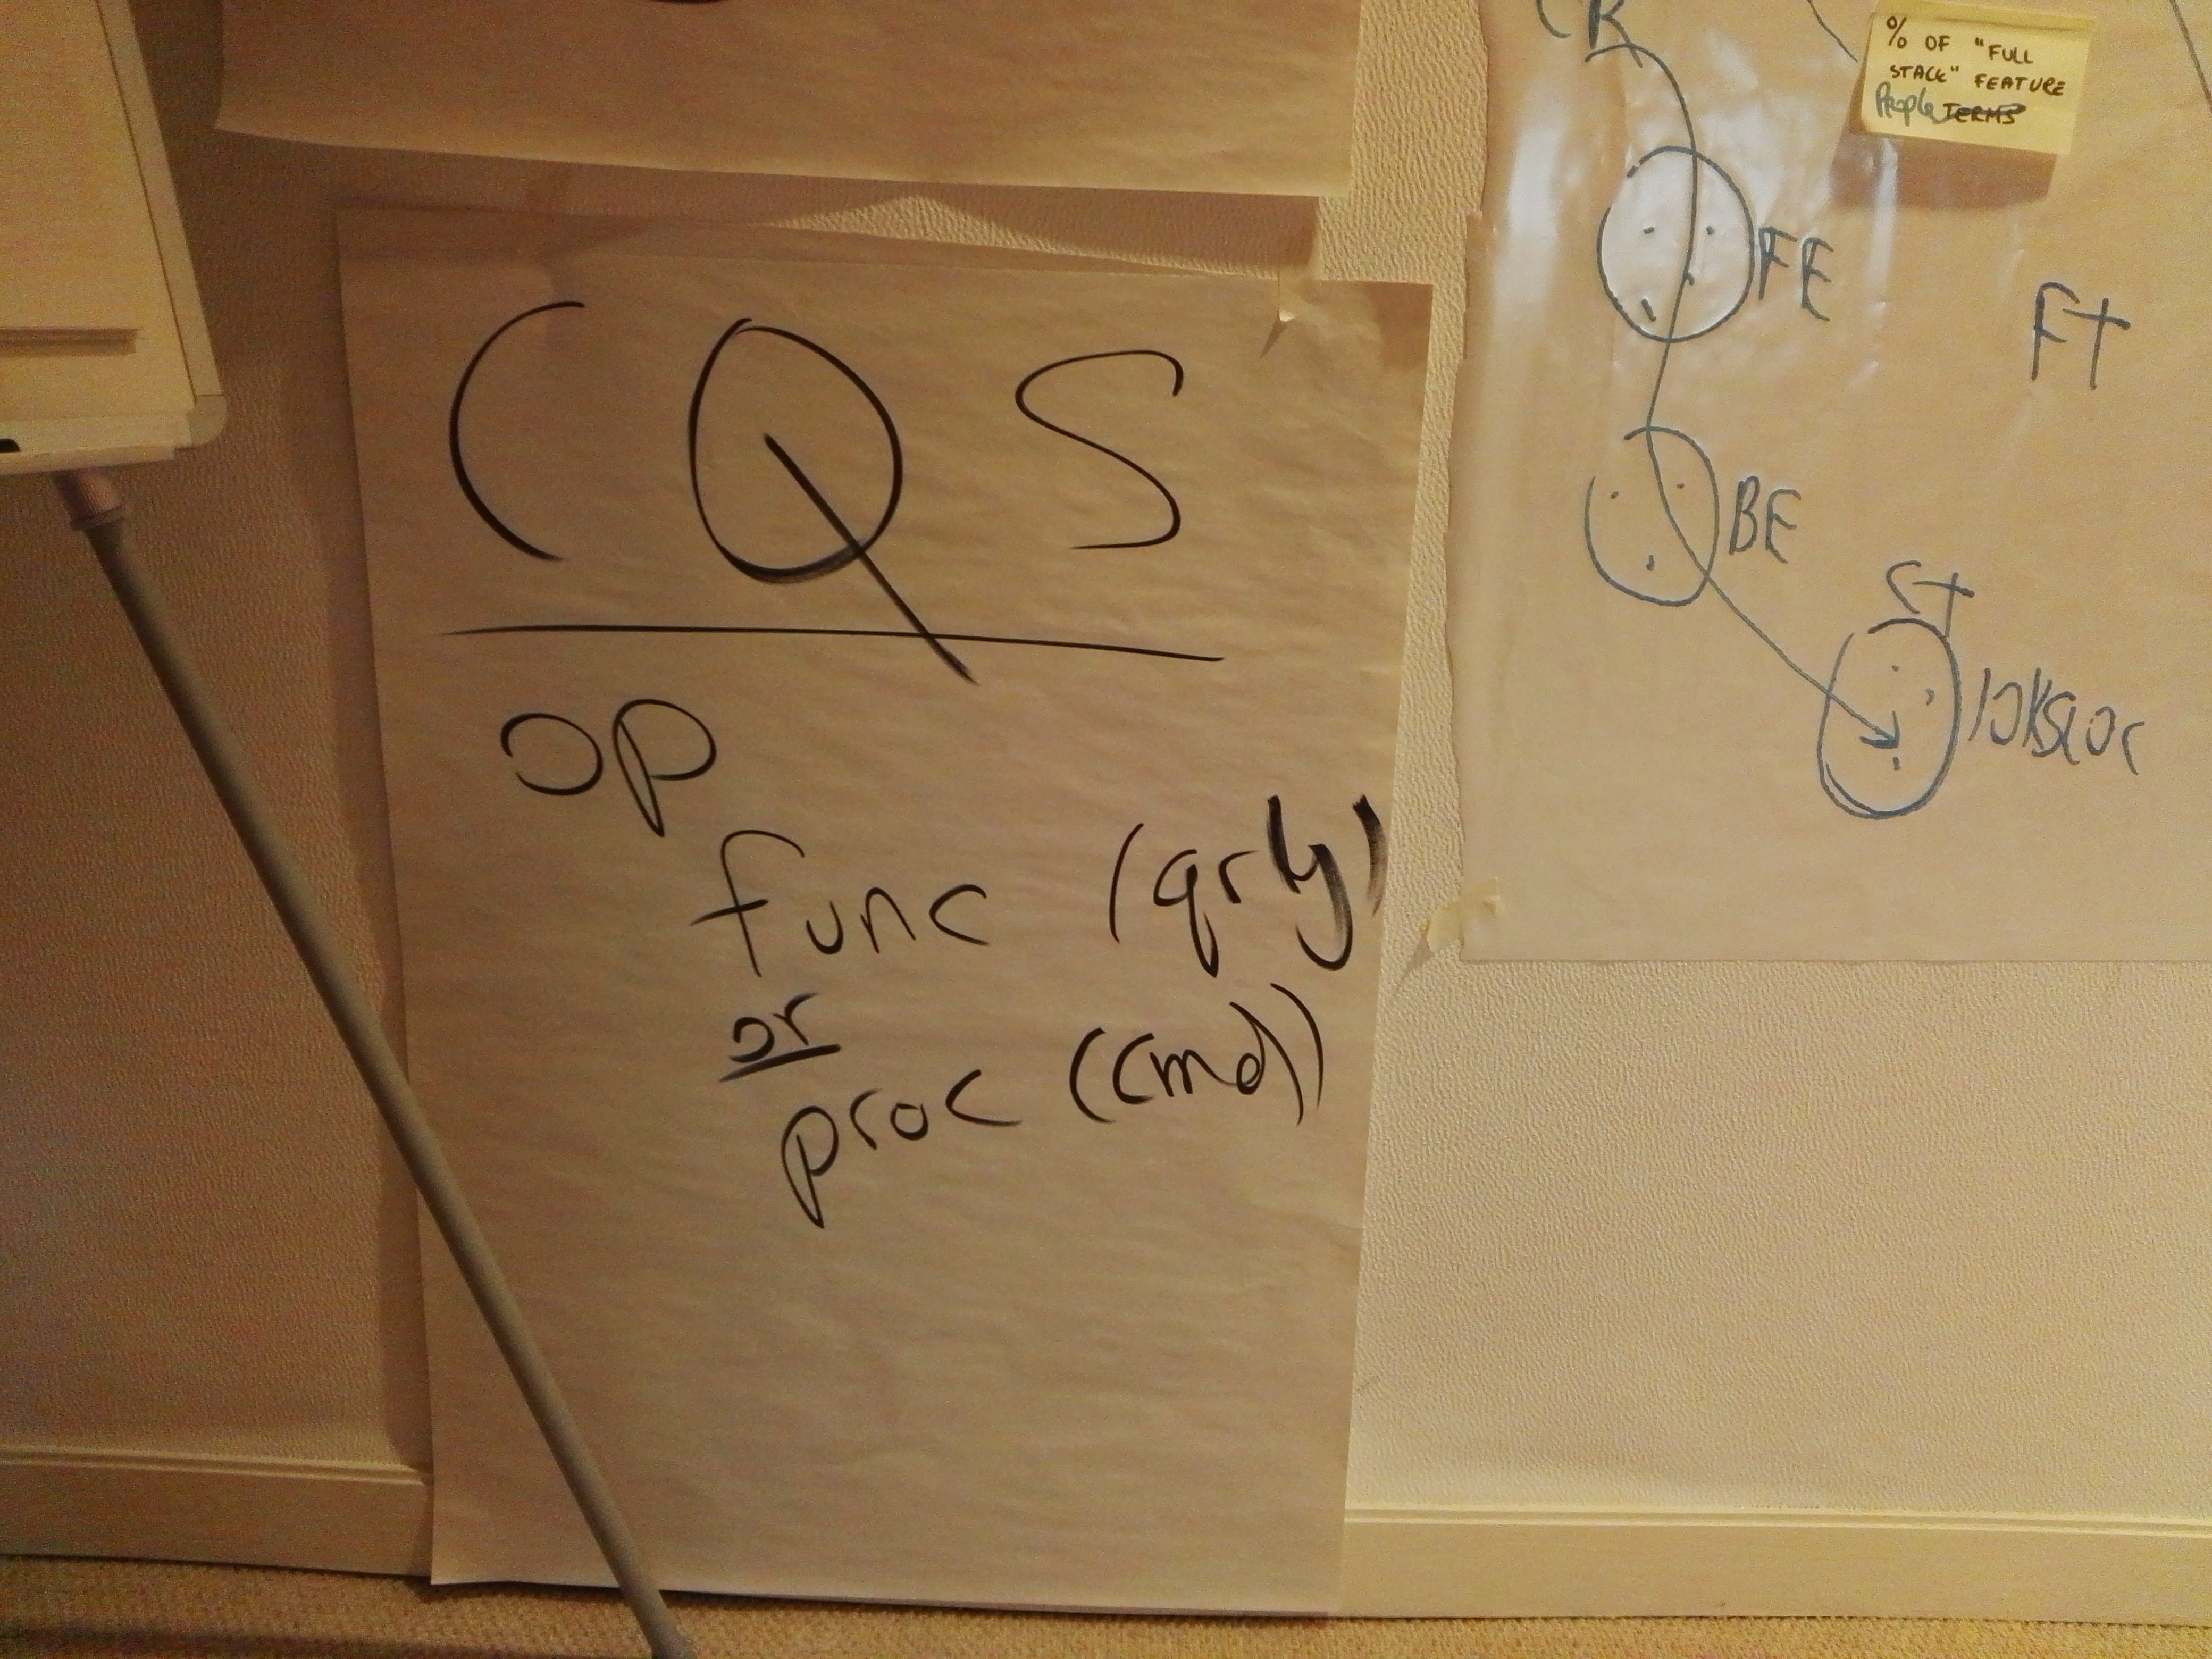 CQS
op
func (qry)
or
proc (cmd)
% OF "FULL
STACK" FEATURE
People TERMS
CR
FE
FT
BE
CT